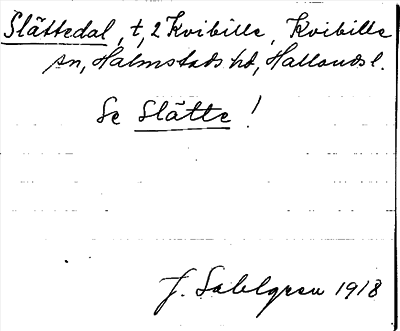 Slättedal, t, 2 Kvibille, Kvibille
sn, Halmstads hd, Hallands l.
Se Slätte !
J. Sahlgren 1918